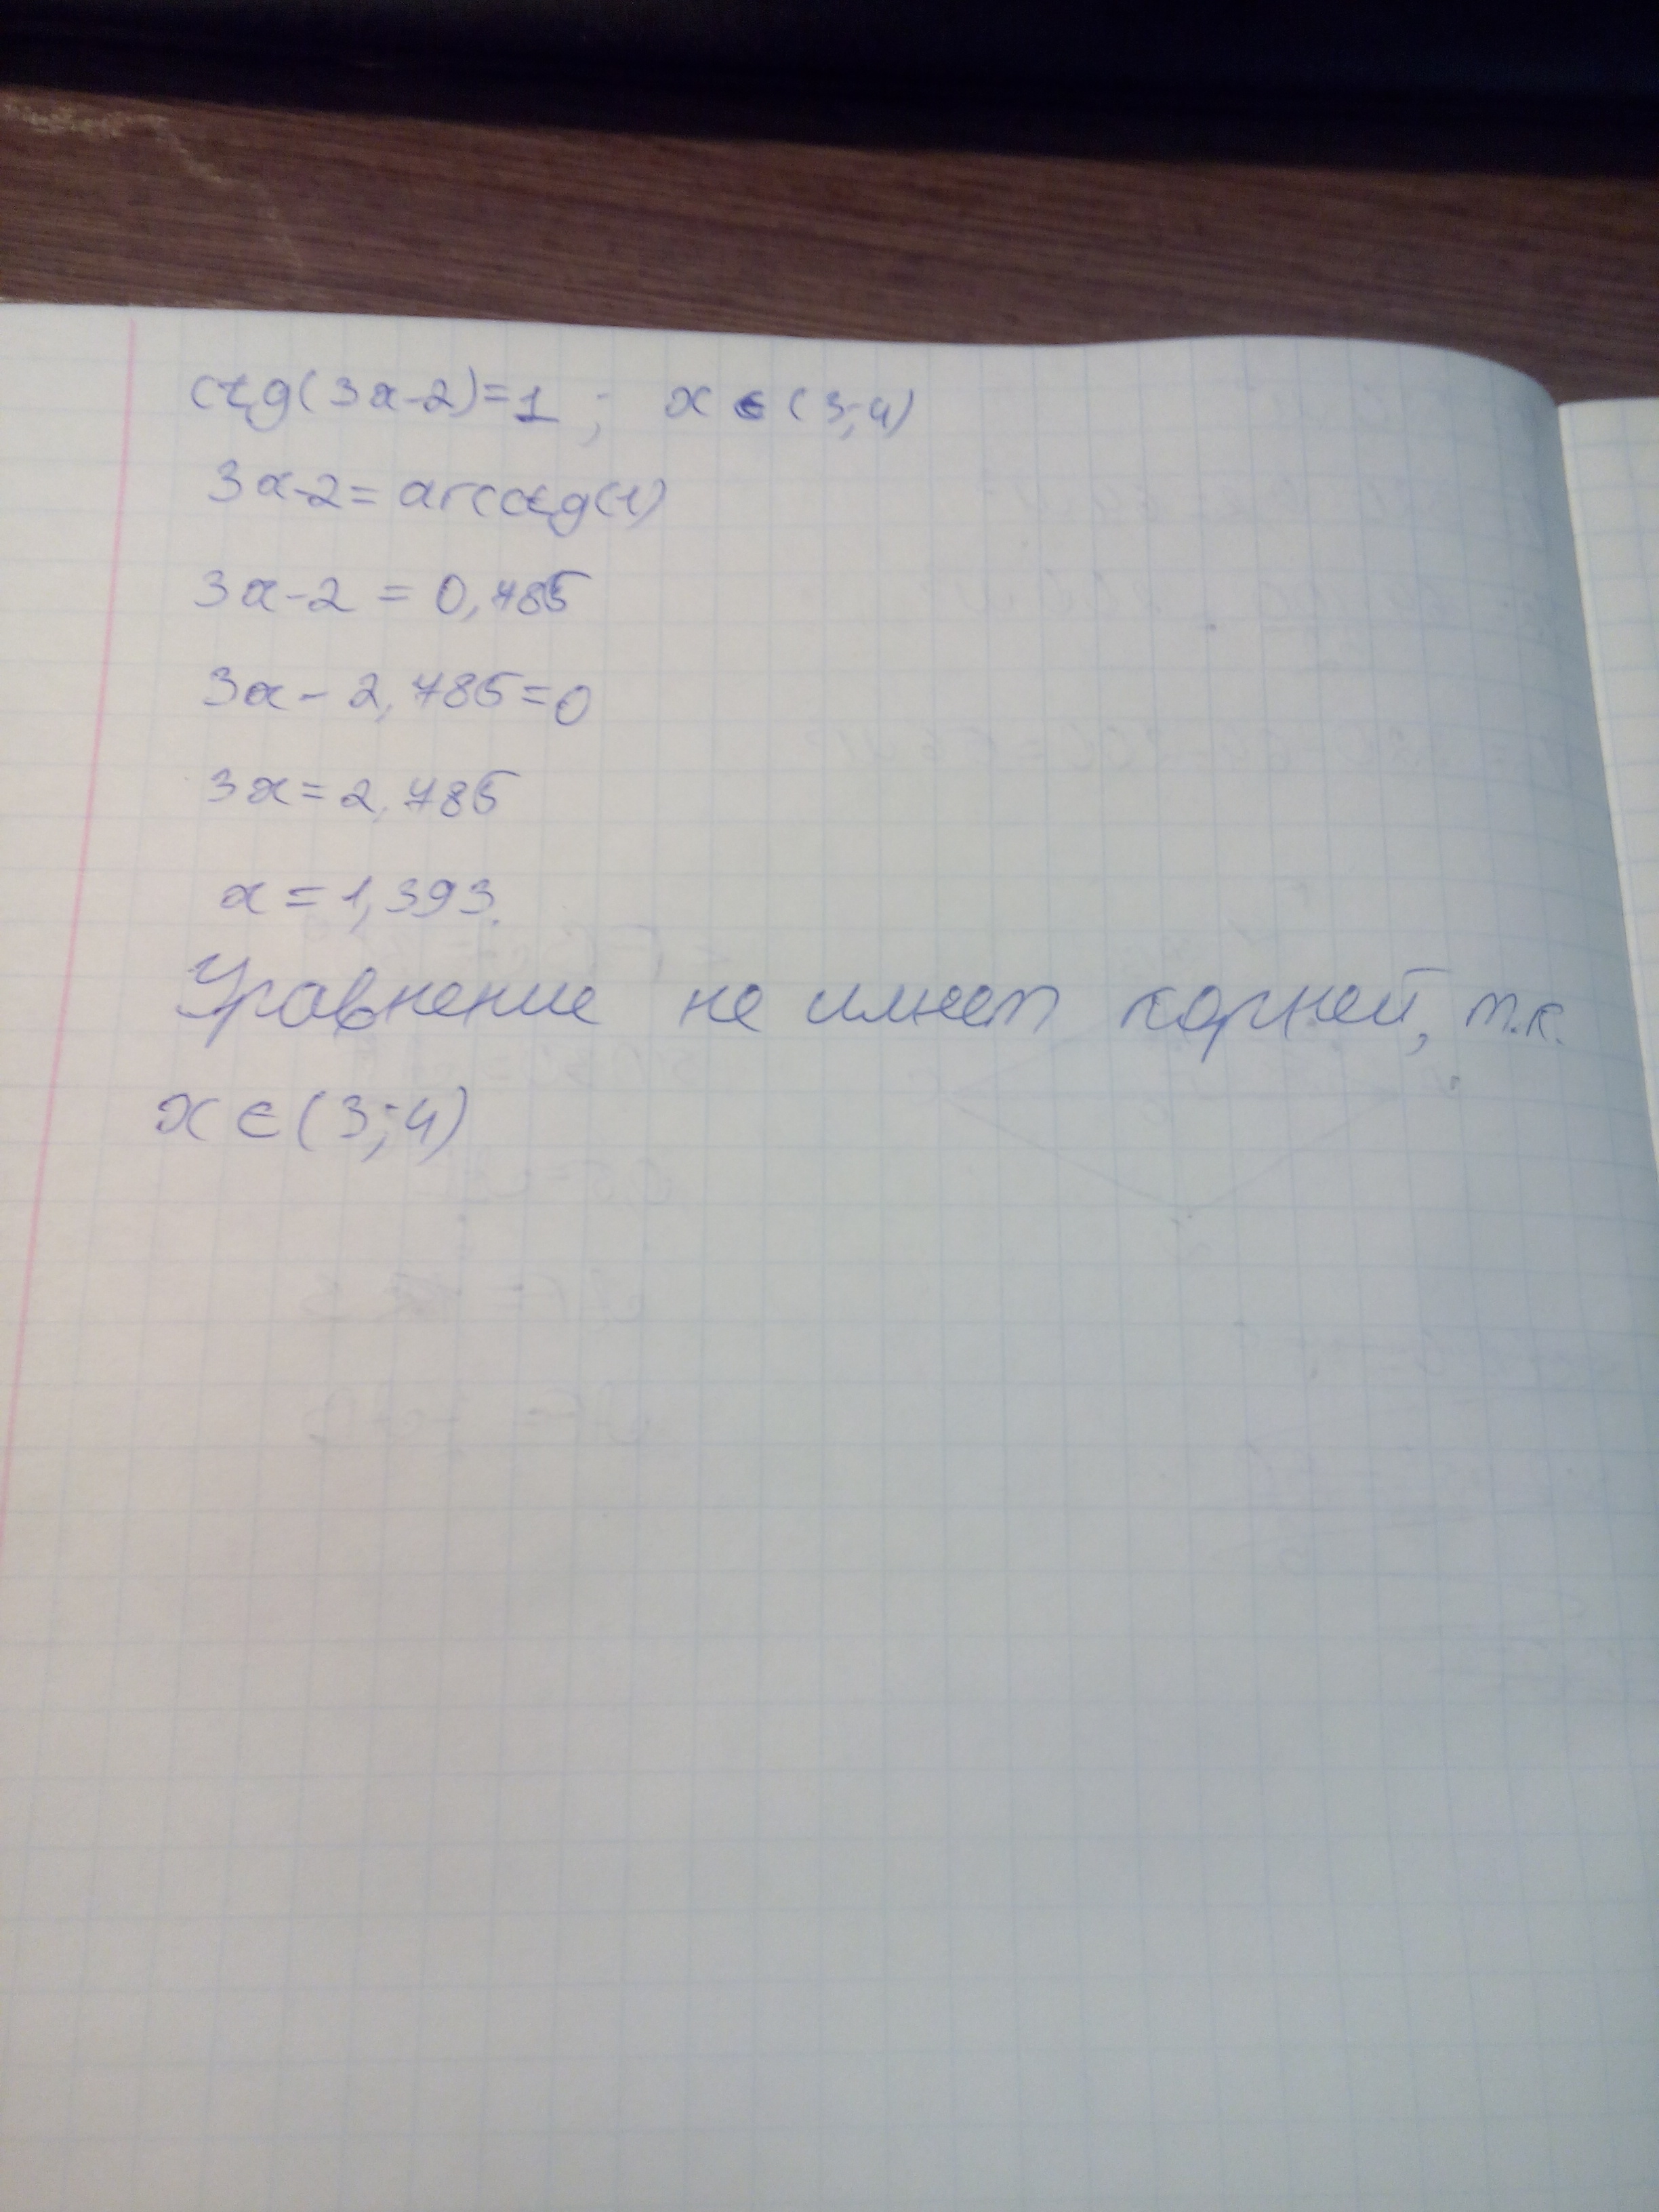 ctg(3x-2)=1; x ∈ (3;4)
3x-2=arcctg(1)
3x-2 = 0,785
3x- 2,785=0
3x=2,785
x=1,393.
Уравнение не имеет корней, т.к.
x ∈ (3;4)